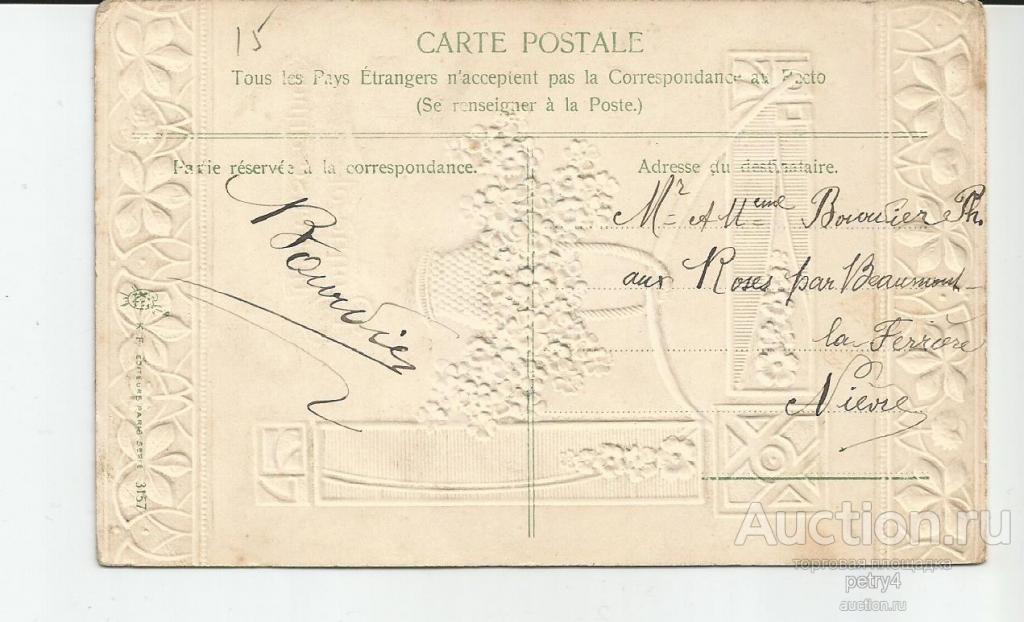 15
CARTE POSTALE
Tous les Pays Étrangers n'acceptent pas la Correspondance au Recto
(Se renseigner à la Poste.)
Partie réservée à la correspondance.
Adresse du destinataire.
Bourdier
Mr & Mme Bourdier Th.
aux Roses par Beaumont-
la Ferrière
Nièvre
K. F. EDITEURS PARIS SERIE 3157
Auction.ru
торговая площадка
petry4
auction.ru